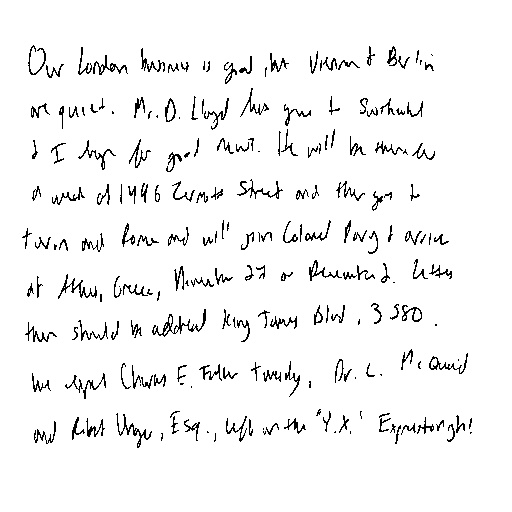 Our London business is good, but Vienna & Berlin
are quiet. Mr. D. Lloyd has gone to Switzerland
& I hope for good news. He will be there for
a week at 1496 Zermott Street and then goes to
Turin and Rome and will join Colonel Parry & arrive
at Athens, Greece, November 27 or December 2. Letters
there should be addressed King James Blvd, 3580.
We expect Charles E. Fuller Tuesday, Dr. L. McQuaid
and Robert Unger, Esq., left on the "Y.X." Express tonight!